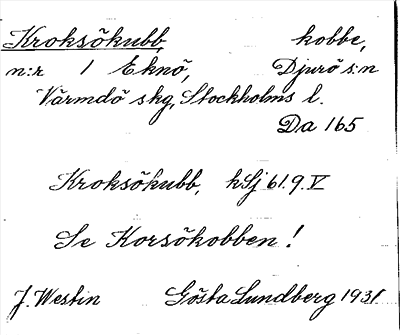 Kroksökubb, kobbe,
n:r 1 Eknö, Djurö s:n
Värmdö skg, Stockholms l.
Da 165
Kroksökubb, kSj 61.9.V
Se Korsökobben!
J. Westin Gösta Lundberg 1931.